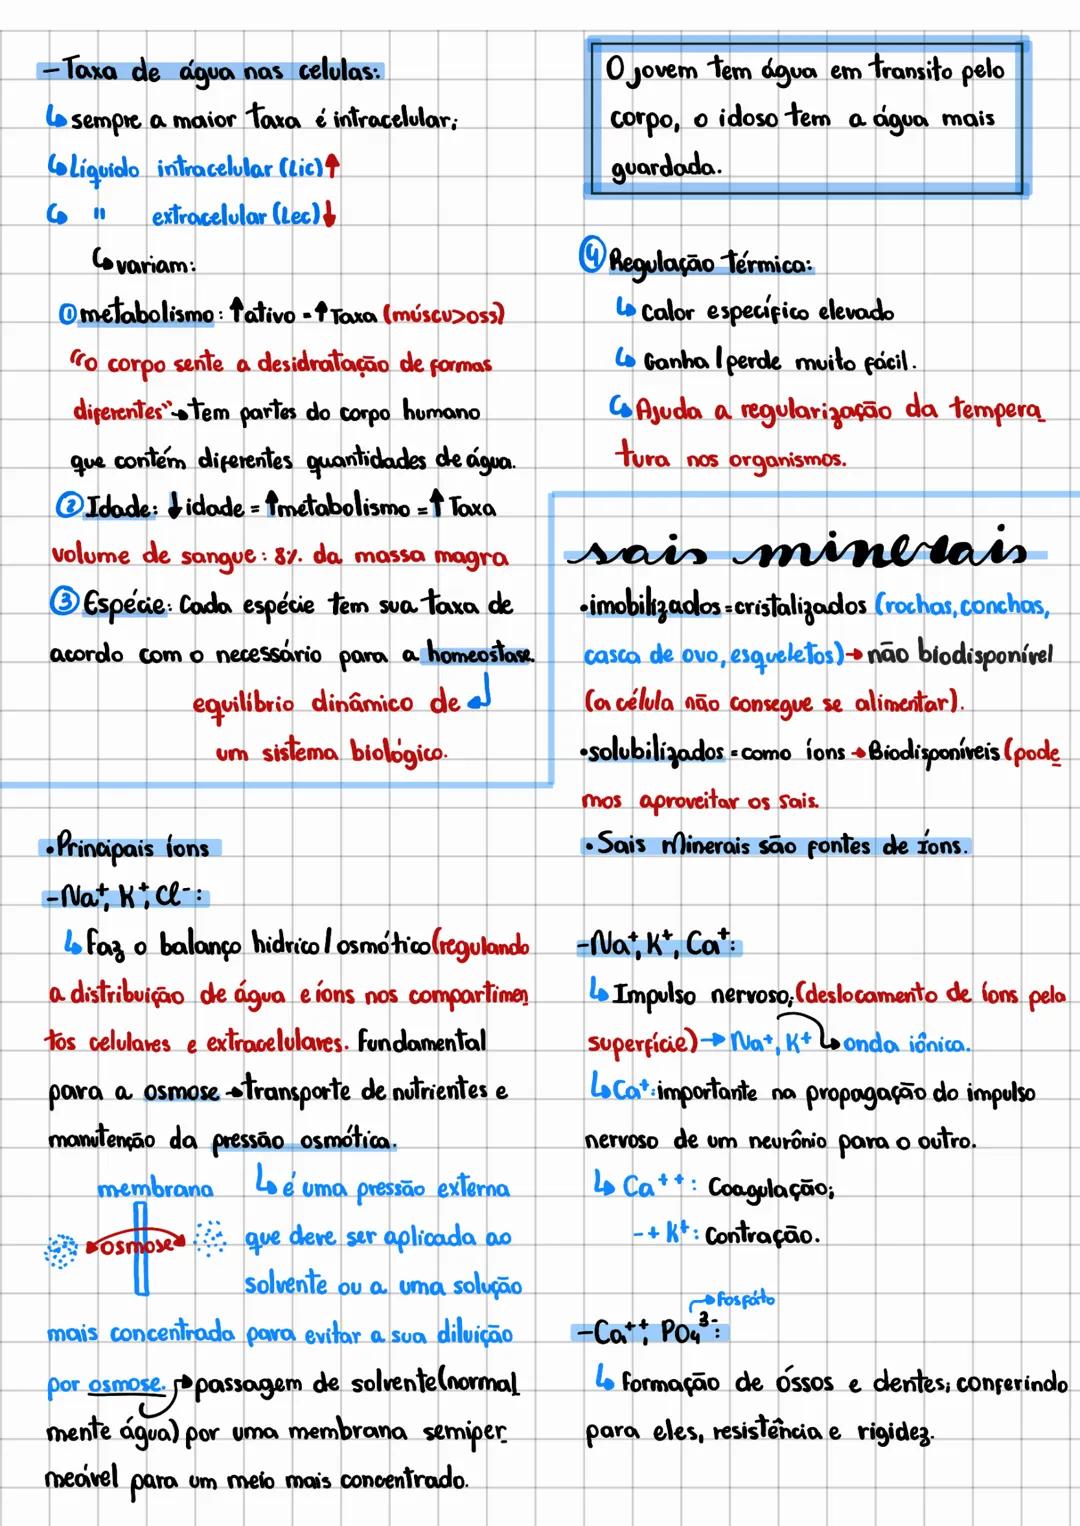 - Taxa de água nas celulas:
↳ sempre a maior taxa é intracelular;
↳ Líquido intracelular (Lic)↑
↳ " extracelular (Lec)↓
↳ variam:
① metabolismo: ↑ativo = ↑ Taxa (múscu>oss)
"o corpo sente a desidratação de formas
diferentes" → Tem partes do corpo humano
que contém diferentes quantidades de água.
② Idade: ↓idade = ↑metabolismo = ↑ Taxa
volume de sangue: 8% da massa magra
③ Espécie: Cada espécie tem sua taxa de
acordo com o necessário para a homeostase.
equilíbrio dinâmico de
um sistema biológico.
O jovem tem água em transito pelo
corpo, o idoso tem a água mais
guardada.
④ Regulação térmica:
↳ Calor específico elevado
↳ Ganha/perde muito fácil.
↳ Ajuda a regularização da tempera
tura nos organismos.
sais minerais
• imobilizados = cristalizados (rochas, conchas,
casca de ovo, esqueletos) → não biodisponível
(a célula não consegue se alimentar).
• solubilizados = como íons → Biodisponíveis (pode
mos aproveitar os sais.
• Sais Minerais são fontes de Íons.
• Principais íons
- Na⁺, K⁺, Cl⁻:
↳ Faz o balanço hidrico/osmótico (regulando
a distribuição de água e íons nos compartimen
tos celulares e extracelulares. Fundamental
para a osmose → transporte de nutrientes e
manutenção da pressão osmótica.
membrana
osmose
↳ é uma pressão externa
que deve ser aplicada ao
solvente ou a uma solução
mais concentrada para evitar a sua diluição
por osmose. → passagem de solvente (normal
mente água) por uma membrana semiper
meável para um meio mais concentrado.
- Na⁺, K⁺, Ca⁺:
↳ Impulso nervoso; (deslocamento de íons pela
superfície) → Na⁺, K⁺ ↳ onda iônica.
↳ Ca⁺: importante na propagação do impulso
nervoso de um neurônio para o outro.
↳ Ca⁺⁺: Coagulação;
- + K⁺: Contração.
→ Fosfato
- Ca⁺⁺, PO₄³⁻:
↳ Formação de óssos e dentes; conferindo
para eles, resistência e rigidez.